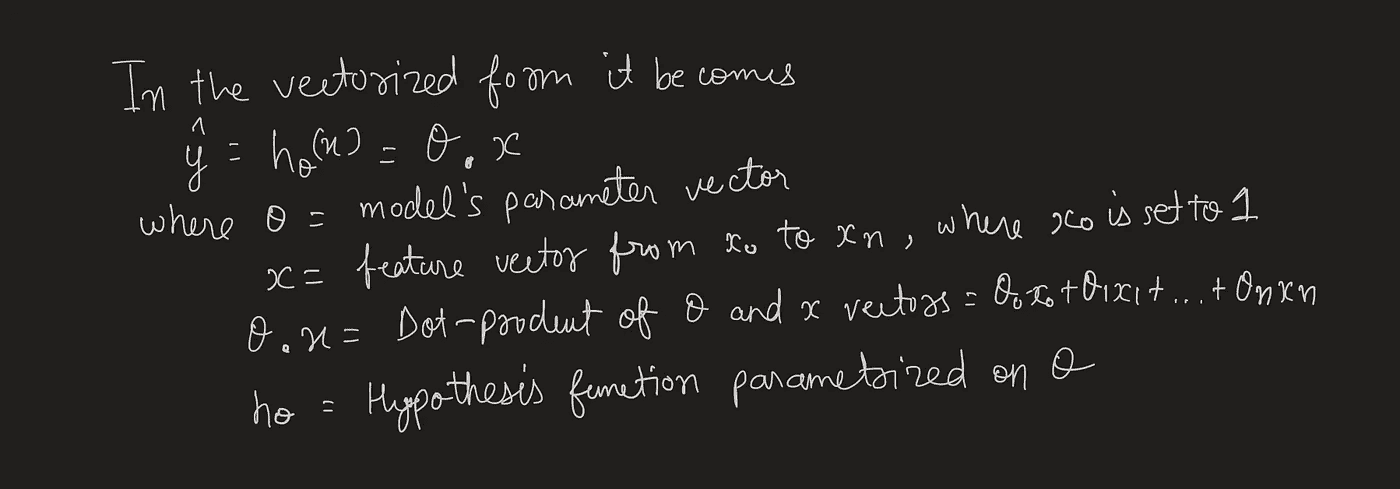 In the vectorized form it becomes
ŷ = hθ(x) = θ . x
where θ = model's parameter vector
x = feature vector from x₀ to xn , where x₀ is set to 1
θ . x = Dot-product of θ and x vectors = θ₀x₀ + θ₁x₁ + ... + θnxn
hθ = Hypothesis function parametrized on θ